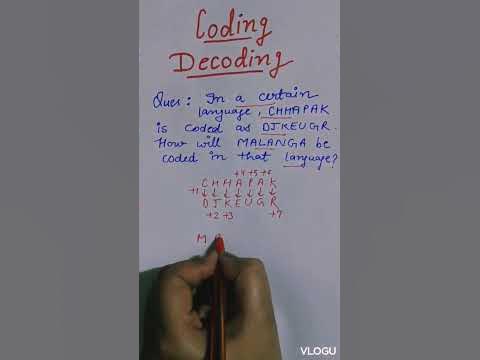 Coding
Decoding
Ques: In a certain
language, CHHAPAK
is coded as DJKEUGR.
How will MALANGA be
coded in that language?
+4 +5 +6
C H H A P A K
+1 ↓ ↓ ↓ ↓ ↓ ↓ ↓
D J K E U G R
+2 +3 +7
M
VLOGU